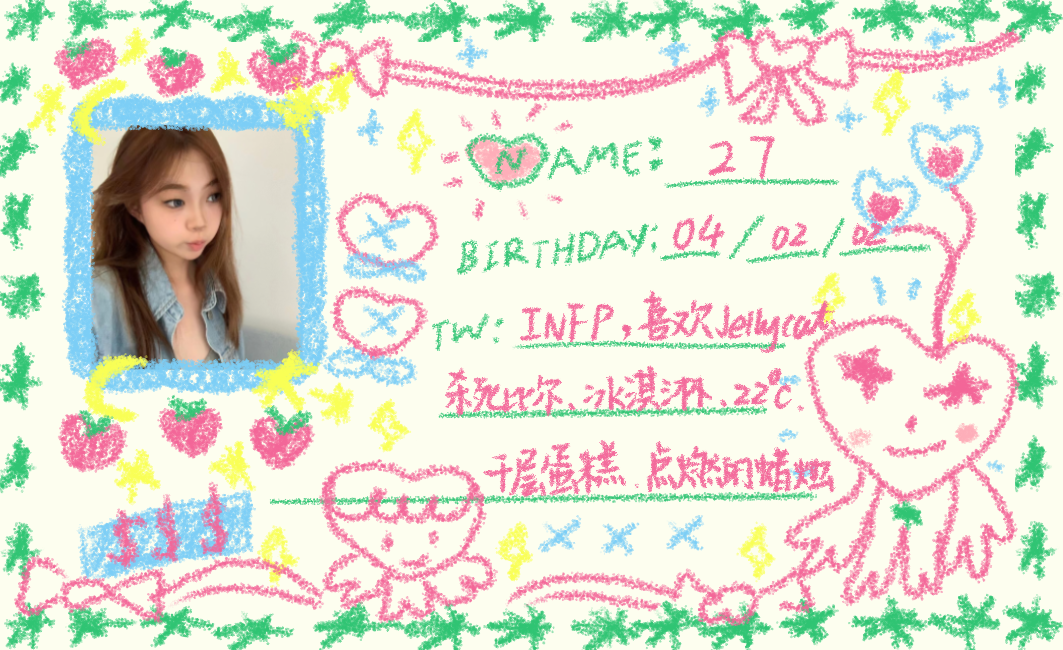 NAME: 27
BIRTHDAY: 04/02/02
TW: INFP,喜欢Jellycat.
杀死比尔、冰淇淋、22℃.
千层蛋糕、点燃的蜡烛